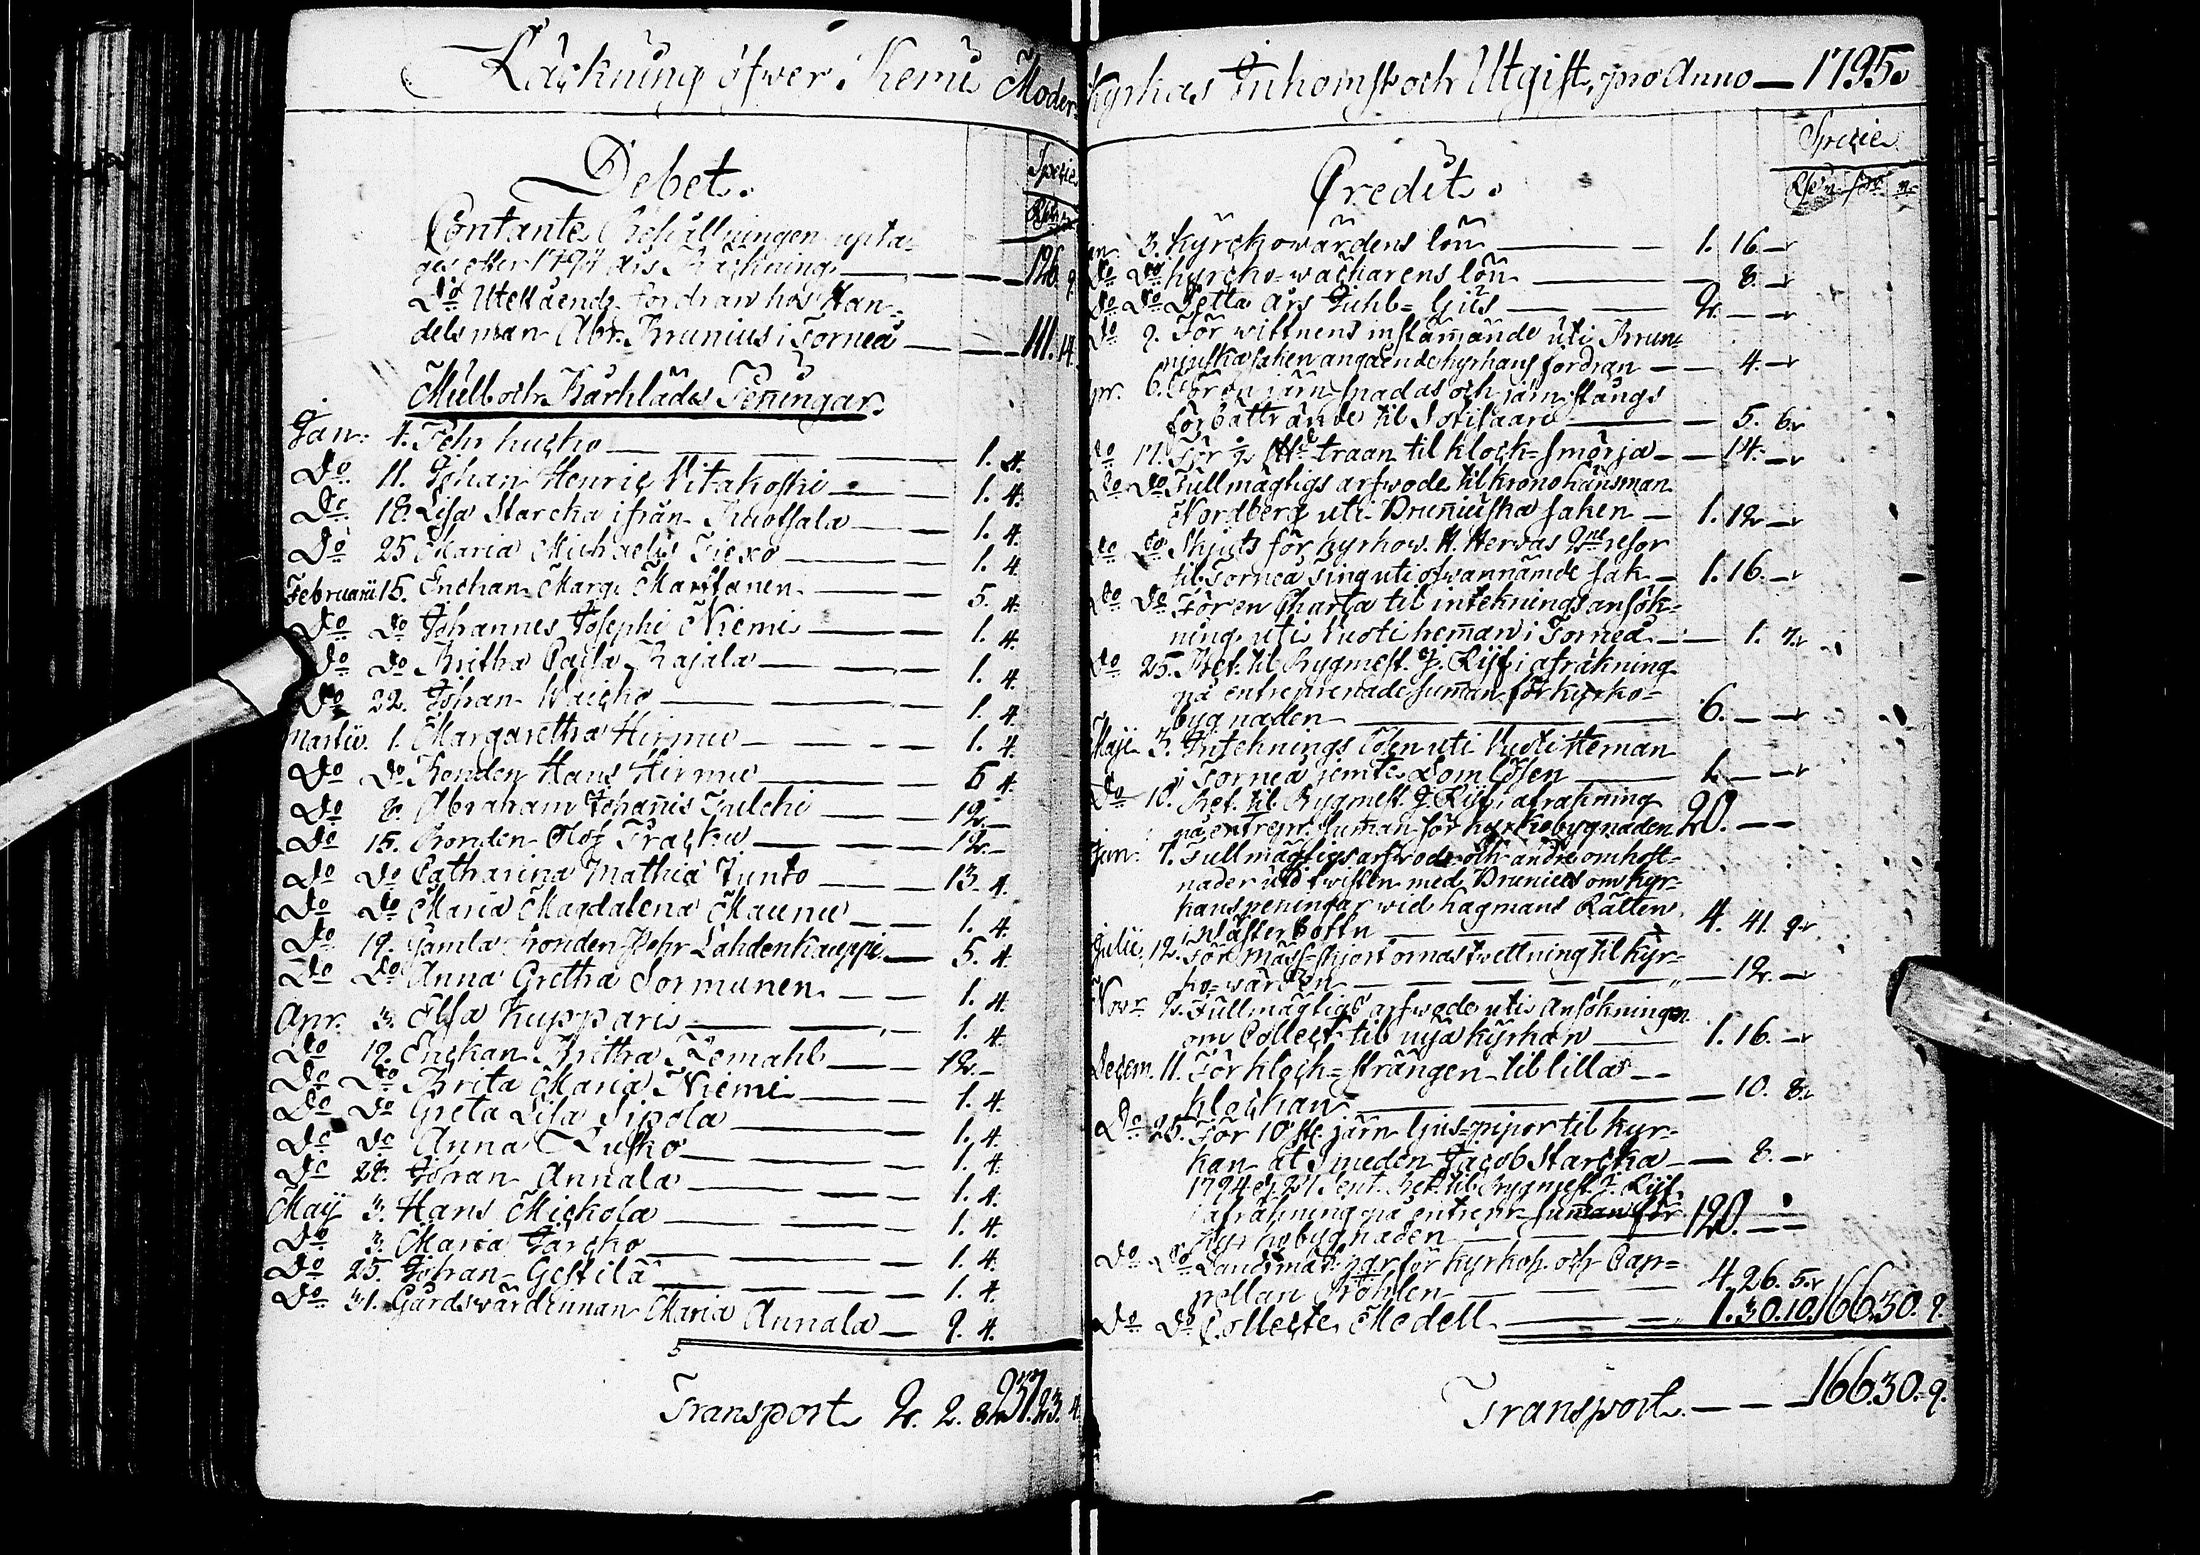 Räckning öfwer Kemi Moder-
Debet.
Specie
Contante Behållningen upta-
ges efter 1794 års Räckning — 126. 9
Do Utestående fordran hos Han-
delsman Abr. Brunius i Torneå — 111. 14
Mull och Bårkläds Peñingar.
Jan. 4. Pehr hucko — 1. 4.
Do 11. Johan Henric Vitakoski — 1. 4.
Do 18. Lisa Starcka ifrån Ruotsala — 1. 4.
Do 25 Maria Michaelis — 1. 4
Februarii 15. Enckan Marg. Martianen — 5. 4
Do Do Johannes Josephi Niemi — 1. 4.
Do Do Britha Cajsa Rajala — 1. 4.
Do 22. Johan Waicko — 1. 4
Martii. 1. Margaretha Hirmu — 1. 4.
Do Do Bonden Hans Hirmu — 5 4
Do 8. Abraham Johañis Julchi — 12. —
Do 15. Bonden Olof Fracku — 12. —
Do Do Catharina Mathiæ Junto — 13. 4.
Do Do Maria Magdalena Maunu — 1. 4.
Do 19. Gamla Bonden Pehr Lahdenkauppi — 5. 4.
Do Do Anna Gretha Sormunen — 1. 4.
Apr. 3. Elsa Kuppari — 1. 4.
Do 19. Enckan Britha Remahl — 12. —
Do Do Brita Maria Niemi — 1. 4.
Do Do Greta Lisa Sipola — 1. 4.
Do Do Anna Rusko — 1. 4.
Do 28. Johan Annala — 1. 4.
Maij 3. Hans Mickola — 1. 4.
Do 3. Maria Jarcko — 1. 4.
Do 25. Johan Gestilä — 1. 4.
Do 31. Gårdswärdinnan Maria Annala — 9. 4.
Transport 2. 2. 8. 237. 23. 4.
Kyrkas Inkomst och Utgift, pro Anno — 1795.
Credit.
Specie
3. Kyrckowärdens lön — 1. 16. —
Do Do kyrcko-wächarens lön — 8. —
Do Do Detta års Juhl-Ljus — 2. — —
Do 9. För wittnens instämande uti Brun-
niuska saken angående kyrkans fordran — 4. —
6. För en järn spada och järn stångs
förbättrande til Sotisaari — 5. 6.
Do 17. För ½ traan til klock-smörja — 14. —
Do Do Fullmägtigs arfwode til kronolänsman
Nordberg uti Bruniuska saken — 1. 12. —
Do Do Skjuts för kyrkow. H. Herwas 2ne resor
til Torneå ting uti ofwannämde sak — 1. 16. —
Do Do För en Charta til intekningsansök-
ning uti Vuoti heman i Torneå — 1. 7.
Do 25. Bet. til Bygmest. J. Rijf i afräkning
på entreprenade suman för kyrko-
bygnaden — 6. — —
Maji 3. Inteknings lösen uti Vuoti Heman
i Torneå jemte Dom lösen — 1. — —
Do 10. Bet. til Bygmest. J. Rijf i afräkning
på entrepr. suman för kyrkobygnaden 20. — —
Jun. 7. Fullmägtigs arfwode och andre omkost-
nader uti twisten med Brunius om kyr-
kans peningar wid lagmans Rätten
i wästerbottn — 4. 41. 9.
Julii. 12. För mäss-skjortornas twettning til kyr-
ko-wärden — 12. —
Novr 2. Fullmägtigs arfwode uti ansökningen
om Collect til nya kyrkan — 1. 16. —
Decem. 11. För klock-strängen til lilla
klockan — 10. 8.
Do 25. För 10 st. järn ljus-pipor til kyr-
kan åt Smeden Jacob Starcka — 8. —
1794 d. 21 Sept. Bet. til Bygmest. J. Rijf
i afräkning på entrepr. suman för
kyrkobygnaden — 120. — —
Do Do för kyrkoh. och Cap-
pellan — 4. 26. 5.
Do Do Collecte Medell — 1. 30. 10. 166. 30. 9.
Transport — 166. 30. 9.